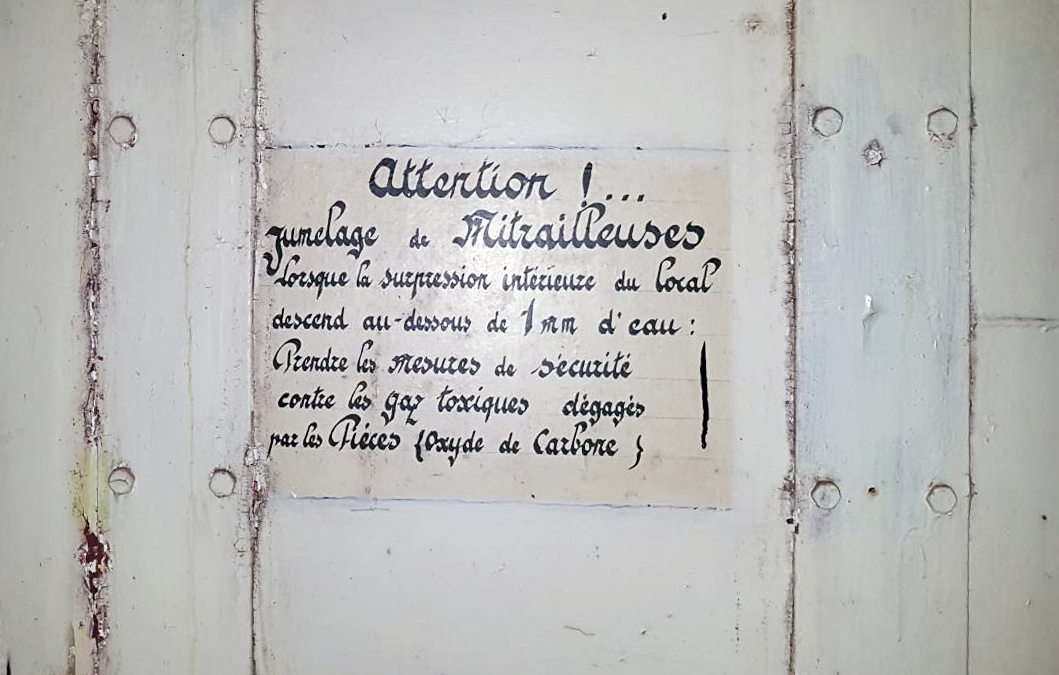 Attention !...
Jumelage de Mitrailleuses
lorsque la surpression intérieure du local
descend au-dessous de 1mm d'eau :
Prendre les mesures de sécurité
contre les gaz toxiques dégagés
par les Pièces (Oxyde de Carbone)